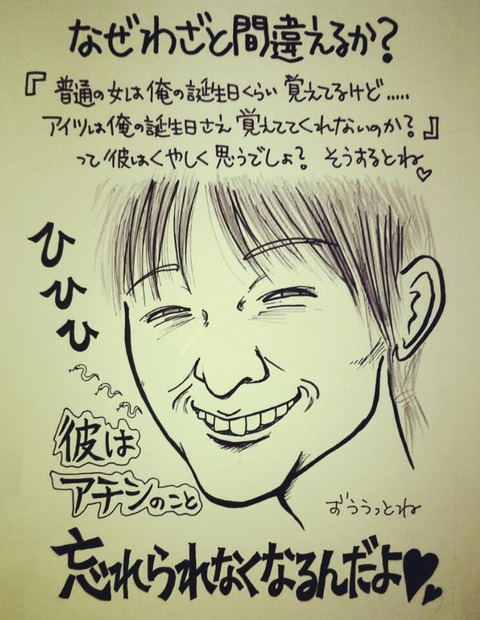 なぜわざと間違えるか?
『普通の女は俺の誕生日くらい覚えてるけど.....
アイツは俺の誕生日さえ覚えててくれないのか?』
って彼はくやしく思うでしょ? そうするとね♡
ヒヒヒ
彼は
アチシのこと
おううっとね
忘れられなくなるんだよ♥♥